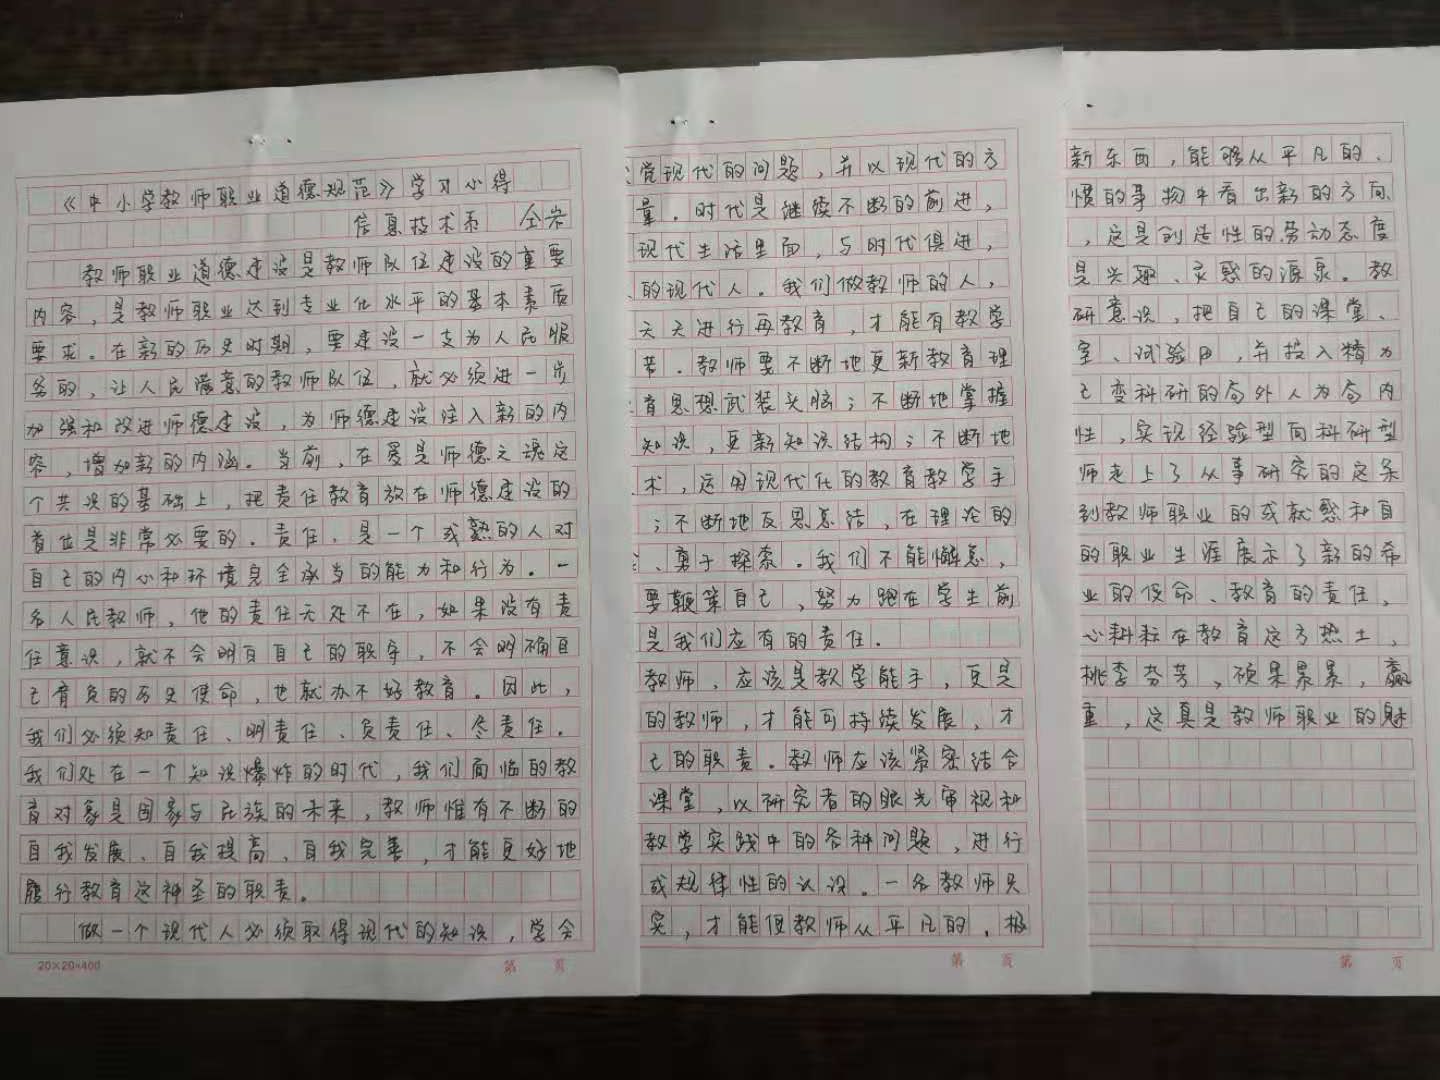 《中小学教师职业道德规范》学习心得
信息技术系 全岩
教师职业道德建设是教师队伍建设的重要
内容，是教师职业达到专业化水平的基本素质
要求。在新的历史时期，要建设一支为人民服
务的，让人民满意的教师队伍，就必须进一步
加强和改进师德建设，为师德建设注入新的内
容，增加新的内涵。当前，在爱是师德之魂这
个共识的基础上，把责任教育放在师德建设的
首位是非常必要的。责任，是一个成熟的人对
自己的内心和环境完全承当的能力和行为。一
名人民教师，他的责任无处不在，如果没有责
任意识，就不会明白自己的职守，不会明确自
己肩负的历史使命，也就办不好教育。因此，
我们必须知责任、明责任、负责任、尽责任。
我们处在一个知识爆炸的时代，我们面临的教
育对象是国家与民族的未来，教师惟有不断的
自我发展、自我提高、自我完善，才能更好地
履行教育这神圣的职责。
做一个现代人必须取得现代的知识，学会
觉现代的问题，并以现代的方
量。时代是继续不断的前进，
现代生活里面，与时代俱进，
的现代人。我们做教师的人，
天天进行再教育，才能有教学
苦。教师要不断地更新教育理
育思想武装头脑；不断地掌握
知识，更新知识结构；不断地
术，运用现代化的教育教学手
；不断地反思总结，在理论的
、勇于探索。我们不能懈怠，
要鞭策自己，努力跑在学生前
是我们应有的责任。
教师，应该是教学能手，更是
的教师，才能可持续发展，才
己的职责。教师应该紧密结合
课堂，以研究者的眼光审视和
教学实践中的各种问题，进行
成规律性的认识。一名教师只
实，才能使教师从平凡的、极
新东西，能够从平凡的、
惯的事物中看出新的方向
，这是创造性的劳动态度
是兴趣、灵感的源泉。教
研意识，把自己的课堂、
室、试验田，并投入精力
己变科研的局外人为局内
性，实现经验型向科研型
师走上了从事研究的这条
到教师职业的成就感和自
的职业生涯展示了新的希
业的使命、教育的责任，
心耕耘在教育这方热土，
桃李芬芳，硕果累累，赢
重，这真是教师职业的魅
20×20=400
第 页
第 页
第 页